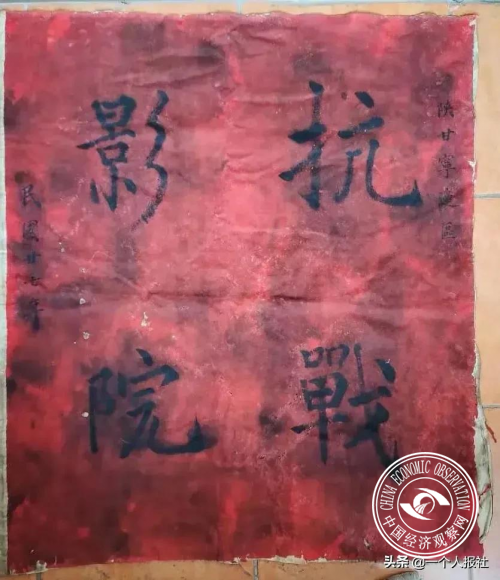 陕甘寧边區
抗戰
影院
民國廿七年
CHINA ECONOMIC OBSERVATION
中国经济观察网
头条 @一个人报社